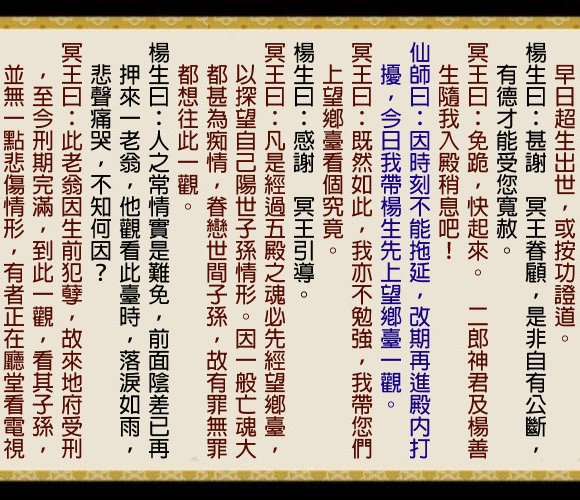 早日超生出世，或按功證道。
楊生曰：甚謝　冥王眷顧，是非自有公斷，
有德才能受您寬赦。
冥王曰：免跪，快起來。　二郎神君及楊善
生隨我入殿稍息吧！
仙師曰：因時刻不能拖延，改期再進殿內打
擾，今日我帶楊生先上望鄉臺一觀。
冥王曰：既然如此，我亦不勉強，我帶您們
上望鄉臺看個究竟。
楊生曰：感謝　冥王引導。
冥王曰：凡是經過五殿之魂必先經望鄉臺，
以探望自己陽世子孫情形。因一般亡魂大
都甚為痴情，眷戀世間子孫，故有罪無罪
都想往此一觀。
楊生曰：人之常情實是難免，前面陰差已再
押來一老翁，他觀看此臺時，落淚如雨，
悲聲痛哭，不知何因？
冥王曰：此老翁因生前犯孽，故來地府受刑
，至今刑期完滿，到此一觀，看其子孫，
並無一點悲傷情形，有者正在廳堂看電視